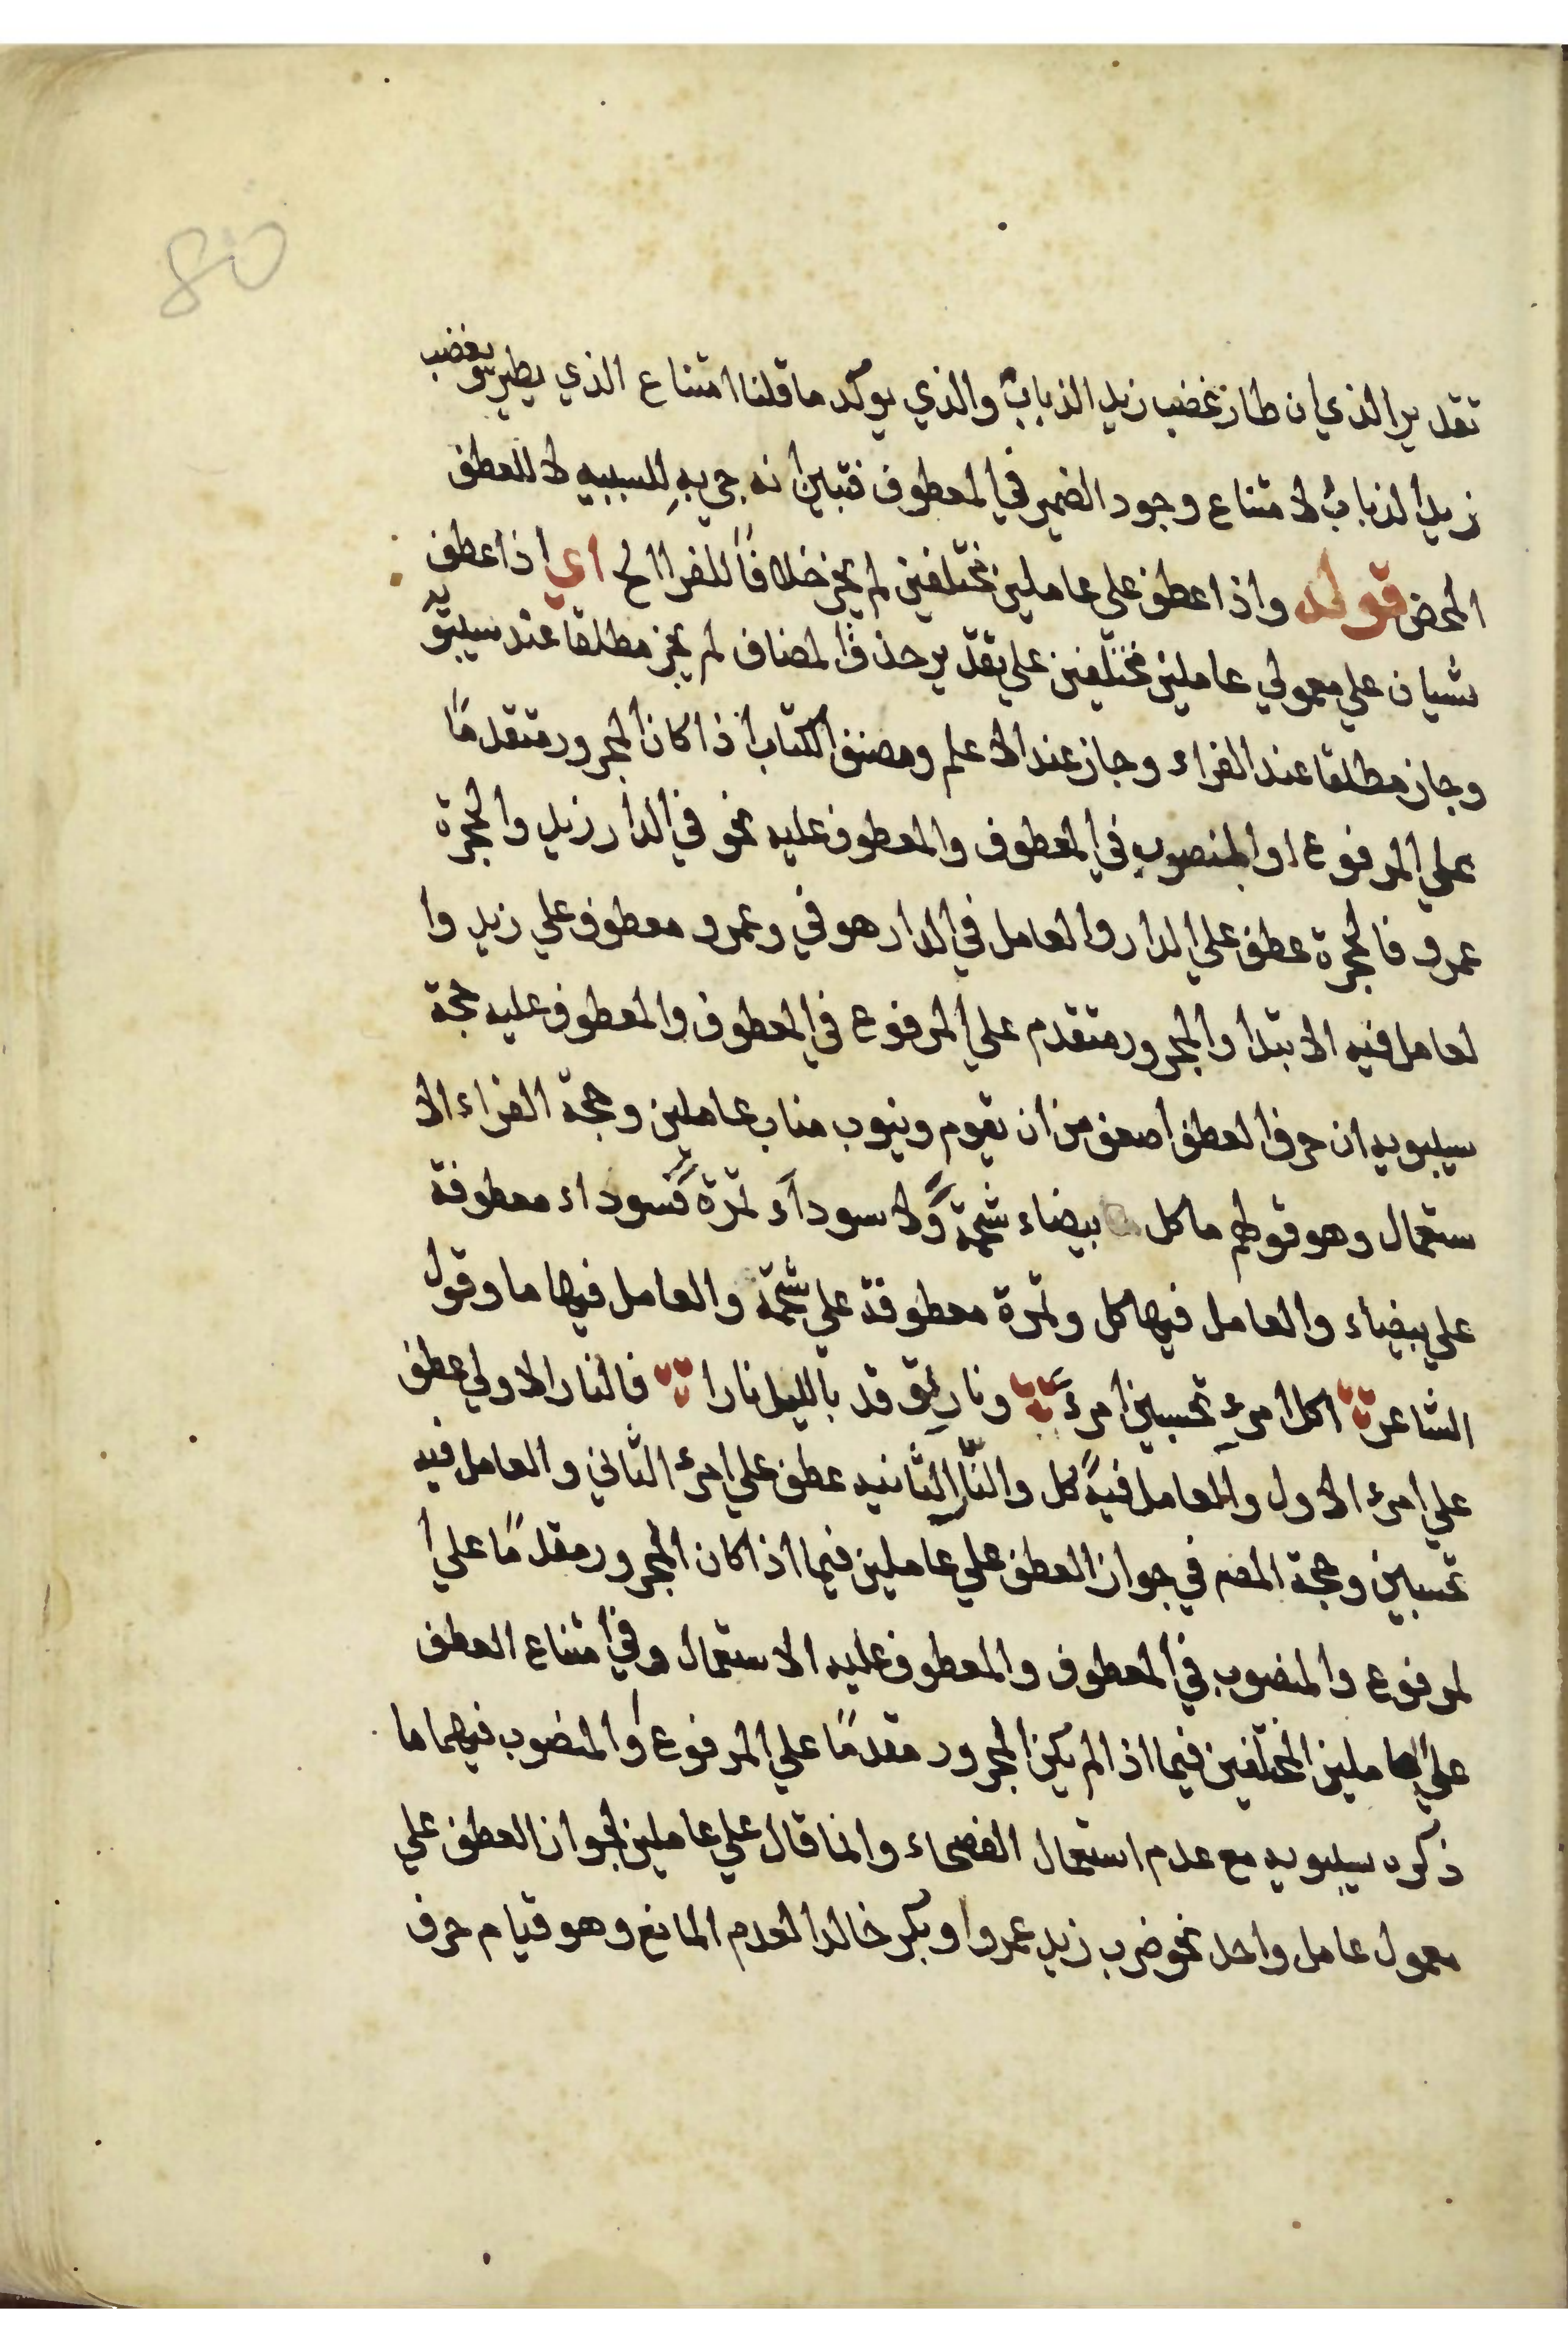 80
تقدير الذي ان طار يغضب زيد الذبابُ والذي يوكد ما قلنا امتناع الذي يطير ويغضب
زيد الذبابُ لامتناع وجود الضمير في المعطوف فتبين انه جي به للسببيه لا للعطف
المحض قوله واذا عطف علي عاملين مختلفين لم يجز خلافاً للفرا الخ اي اذا عطف
شيان علي معمولي عاملين مختلفين علي تقدير حذف المضاف لم يجز مطلقا عند سيبويه
وجاز مطلقا عند الفراء وجاز عند الاعلم ومصنف الكتاب اذا كان المجرور متقدمًا
علي المرفوع او المنصوب في المعطوف والمعطوف عليه نحو في الدار زيد والحجرة
عمرو فالحجرة عطف علي الدار والعامل في الدار هو في وعمرو معطوف علي زيد وا
لعامل فيه الابتدا والمجرور متقدم علي المرفوع في المعطوف والمعطوف عليه حجة
سيبويه ان حرف العطف اضعف من ان يقوم وينوب مناب عاملين وحجة الفراء الا
ستعمال وهو قولهم ما كل بيضاء شحمةً ولا سوداء تمرة فسوداء معطوفة
علي بيضاء والعامل فيها كل وتمرة معطوفة علي شحمة والعامل فيها ما وقول
الشاعر اكل امرءٍ تحسبين امرءً ونارٍ توقد بالليل نارا فالنار الاولي عطف
علي امرء الاول والعامل فيه كل والنار الثانيه عطف علي امرء الثاني والعامل فيه
تحسبين وحجة المصـ في جواز العطف علي عاملين فيما اذا كان المجرور مقدمًا علي ا
لمرفوع والمنصوب في المعطوف والمعطوف عليه الاستعمال وفي امتناع العطف
علي العاملين المختلفين فيما اذا لم يكن المجرور مقدمًا علي المرفوع والمنصوب فيهما ما
ذكره سيبويه مع عدم استعمال الفصحاء وانما قال علي عاملين لجواز العطف علي
معمول عامل واحد نحو ضرب زيد عمروا وبكر خالدا لعدم المانع وهو قيام حرف